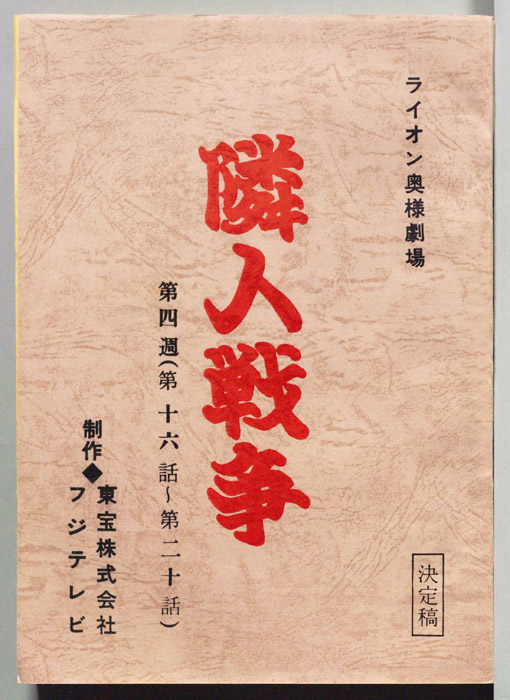 ライオン奥様劇場
隣人戦争
第四週(第十六話~第二十話)
制作◆東宝株式会社
フジテレビ
決定稿